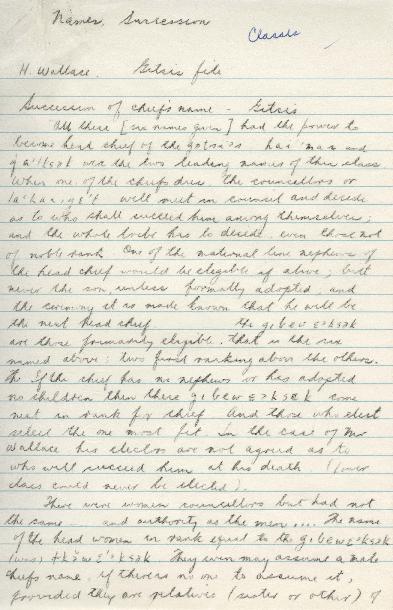 Names, Succession
Classes
H. Wallace. Gitsis file
Succession of chief's name - Gitsis
"All these [six names given] had the power to
become head chief of the
were the two leading names of this class
When one of the chiefs dies, the councillors or
will meet in council and decide
as to who shall succeed him among themselves;
and the whole tribe has to decide, even those not
of noble rank. One of the maternal line nephews of
the head chief would be elegible if alive; but
never the son, unless formally adopted, and
the ceremony it is made known that he will be
the next head chief. the
are those primarily eligible. that is the six
named above: two first ranking above the others.
If the chief has no nephews or has adopted
no children then these come
next in rank for chief. And those who elect
select the one most fit. In the case of Mr
Wallace his electors are not agreed as to
who will succeed him at his death. (lower
class could never be elected).
There were women councillors but had not
the same and authority as the men .... The name
of the head women in rank equal to the
(was) They even may assume a male
chief's name, if there is no one to assume it,
provided they are relatives (sister or other) of